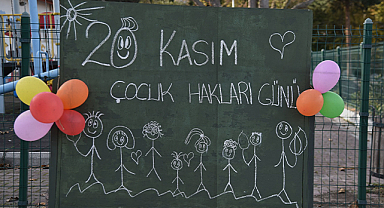 20 KASIM
ÇOCUK HAKLARI GÜNÜ